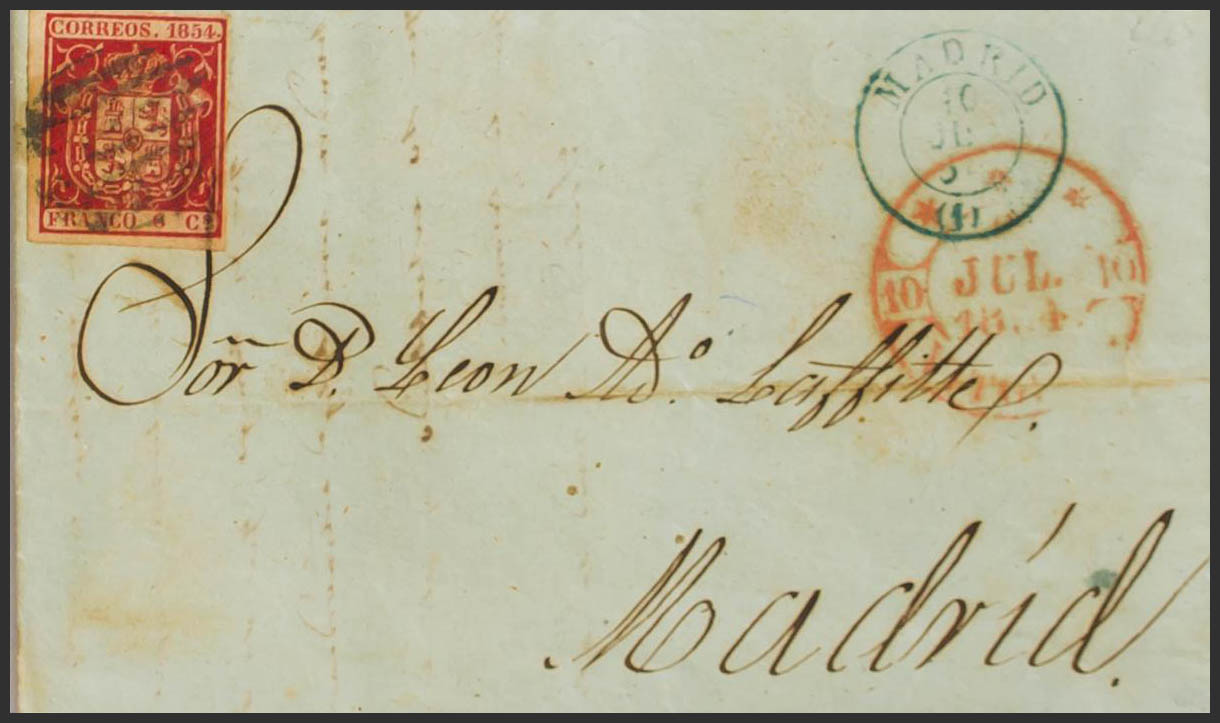 CORREOS. 1854.
FRANCO 6 Cs
MADRID
10
JUL
(1)
10 JUL. 10
Sor. D. Leon Ado. Laffitte.
Madrid.